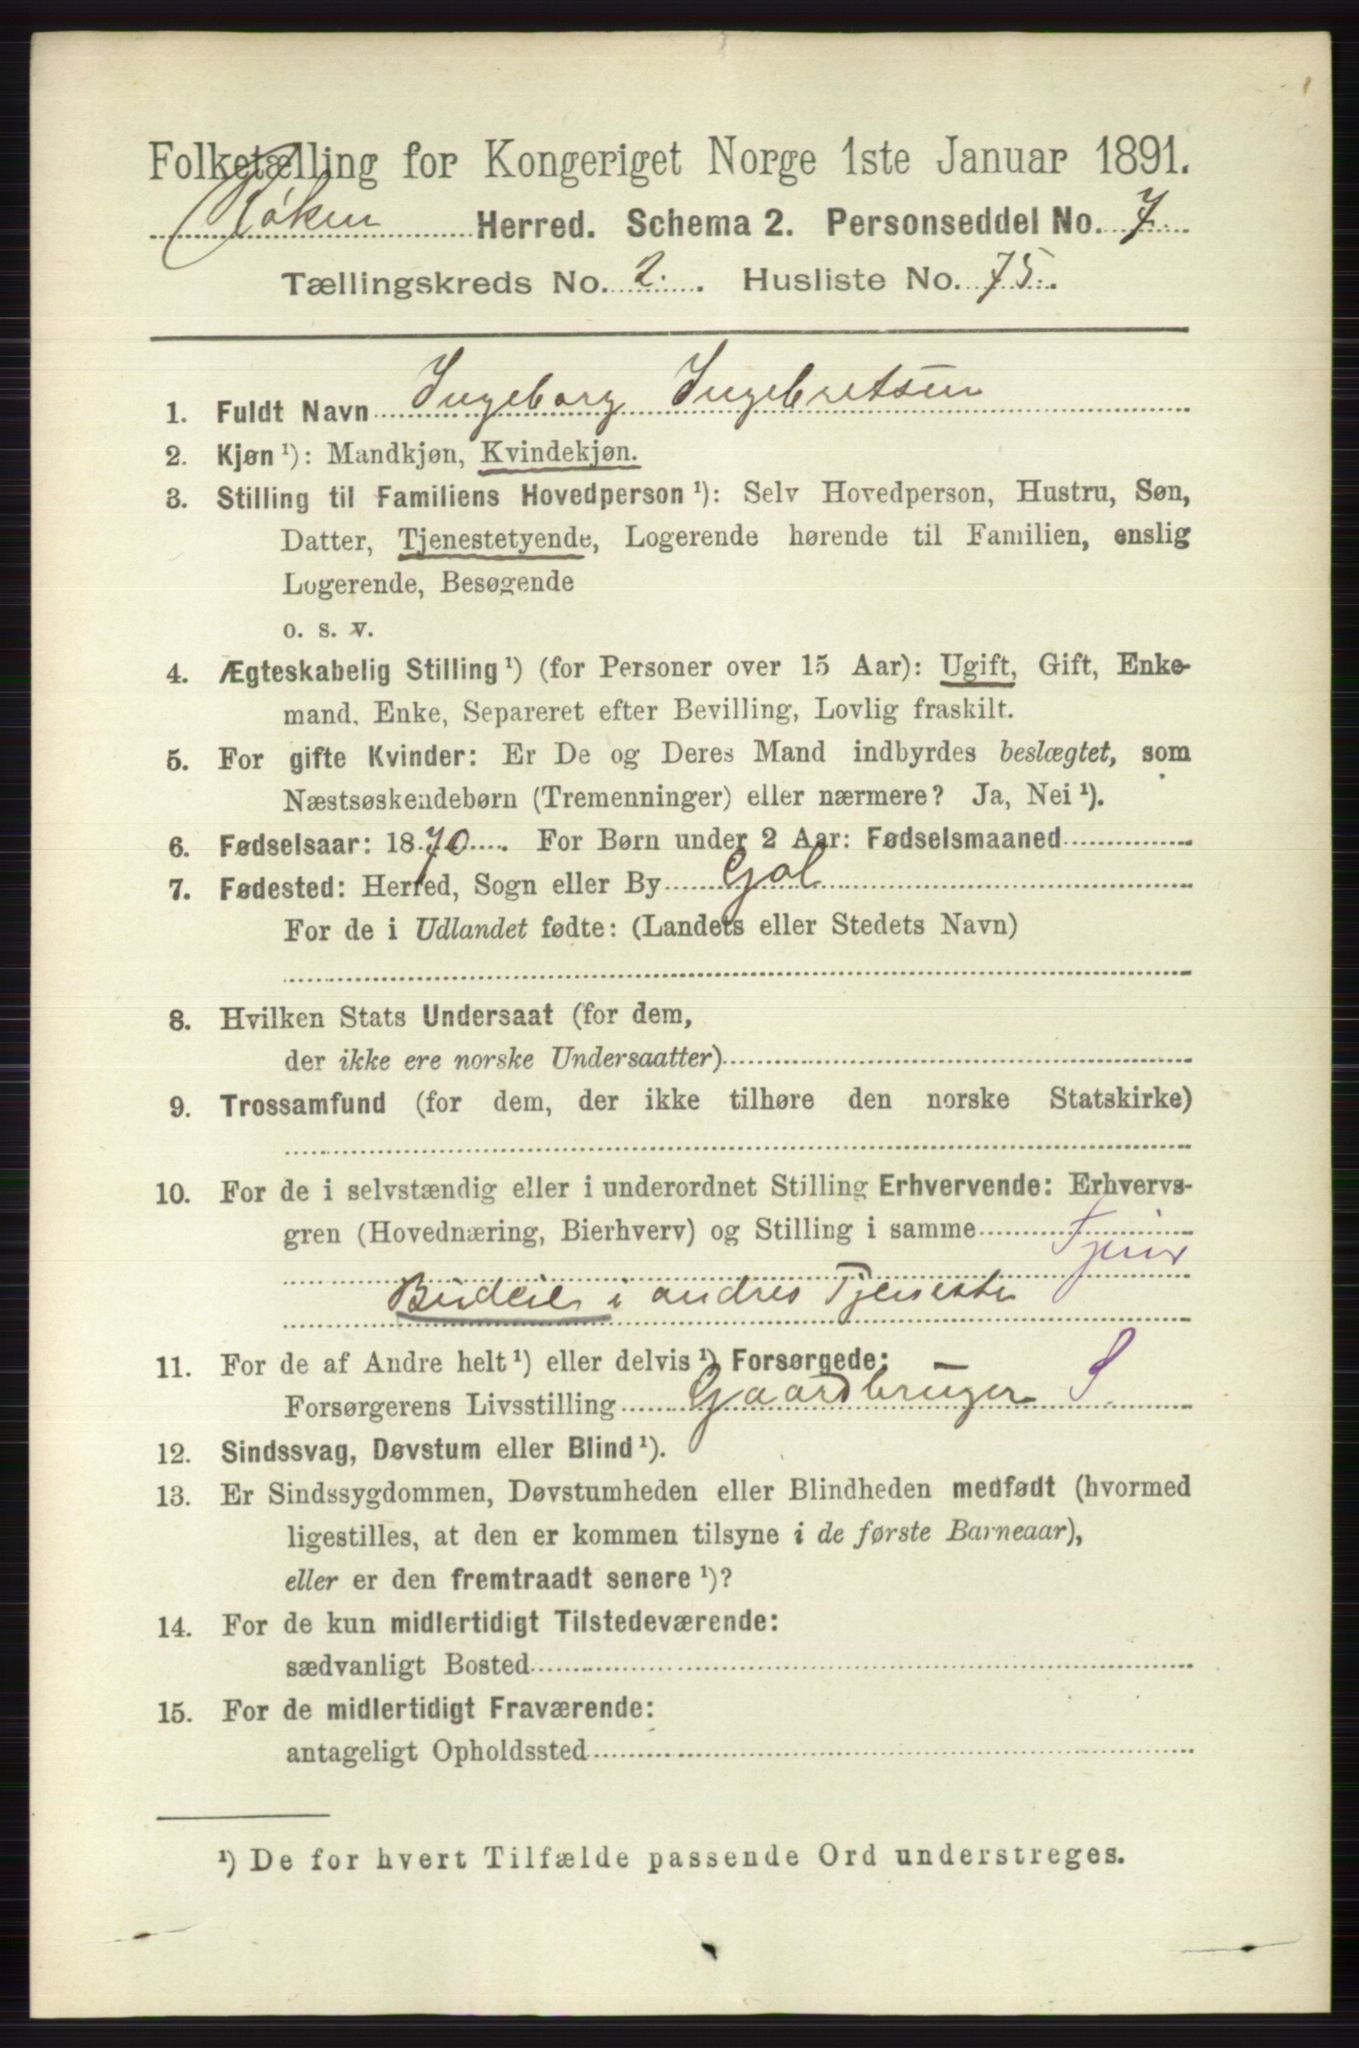 Folketælling for Kongeriget Norge 1ste Januar 1891.
Røken Herred. Schema 2. Personseddel No. 7
Tællingskreds No. 2. Husliste No. 75.
1. Fuldt Navn Ingeborg Ingebretsen
2. Kjøn¹): Mandkjøn, Kvindekjøn.
3. Stilling til Familiens Hovedperson¹): Selv Hovedperson, Hustru, Søn,
Datter, Tjenestetyende, Logerende hørende til Familien, enslig
Logerende, Besøgende
o. s. v.
4. Ægteskabelig Stilling¹) (for Personer over 15 Aar): Ugift, Gift, Enke-
mand, Enke, Separeret efter Bevilling, Lovlig fraskilt.
5. For gifte Kvinder: Er De og Deres Mand indbyrdes beslægtet, som
Næstsøskendebørn (Tremenninger) eller nærmere? Ja, Nei¹).
6. Fødselsaar: 1870. For Børn under 2 Aar: Fødselsmaaned
7. Fødested: Herred, Sogn eller By Gol
For de i Udlandet fødte: (Landets eller Stedets Navn)
8. Hvilken Stats Undersaat (for dem,
der ikke ere norske Undersaatter)
9. Trossamfund (for dem, der ikke tilhøre den norske Statskirke)
10. For de i selvstændig eller i underordnet Stilling Erhvervende: Erhvervs-
gren (Hovednæring, Bierhverv) og Stilling i samme
Budeie i andres Tjeneste
11. For de af Andre helt¹) eller delvis¹) Forsørgede:
Forsørgerens Livsstilling Gaardbruger S
12. Sindssvag, Døvstum eller Blind¹).
13. Er Sindssygdommen, Døvstumheden eller Blindheden medfødt (hvormed
ligestilles, at den er kommen tilsyne i de første Barneaar),
eller er den fremtraadt senere¹)?
14. For de kun midlertidigt Tilstedeværende:
sædvanligt Bosted
15. For de midlertidigt Fraværende:
antageligt Opholdssted
¹) De for hvert Tilfælde passende Ord understreges.